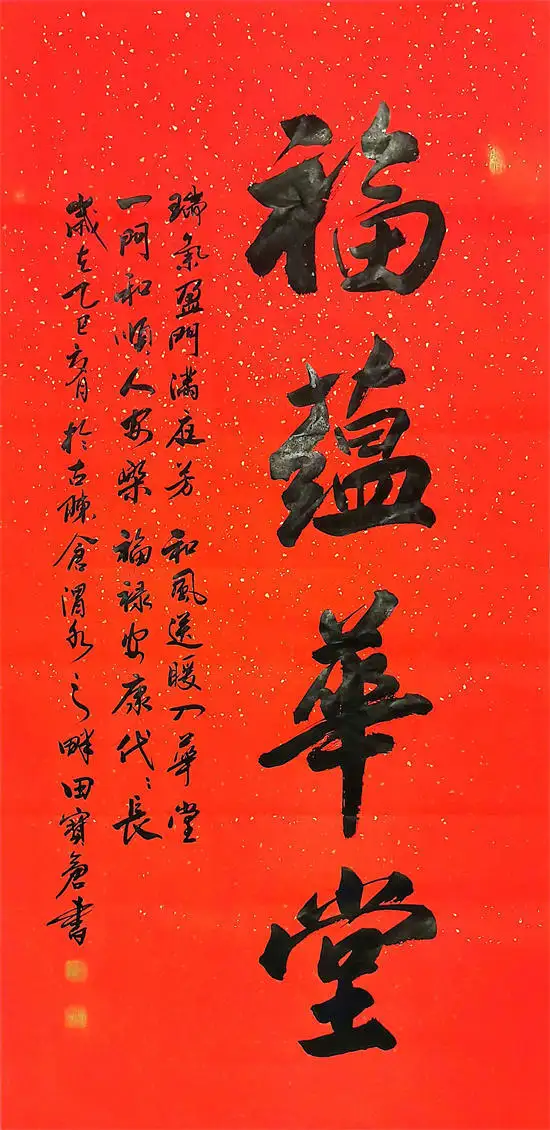 福蕴華堂
瑞氣盈門满庭芳 和風送暖入華堂
一門和順人安樂 福禄安康代〻長
歲在乙巳六月於古陳倉渭水之畔田寳倉書